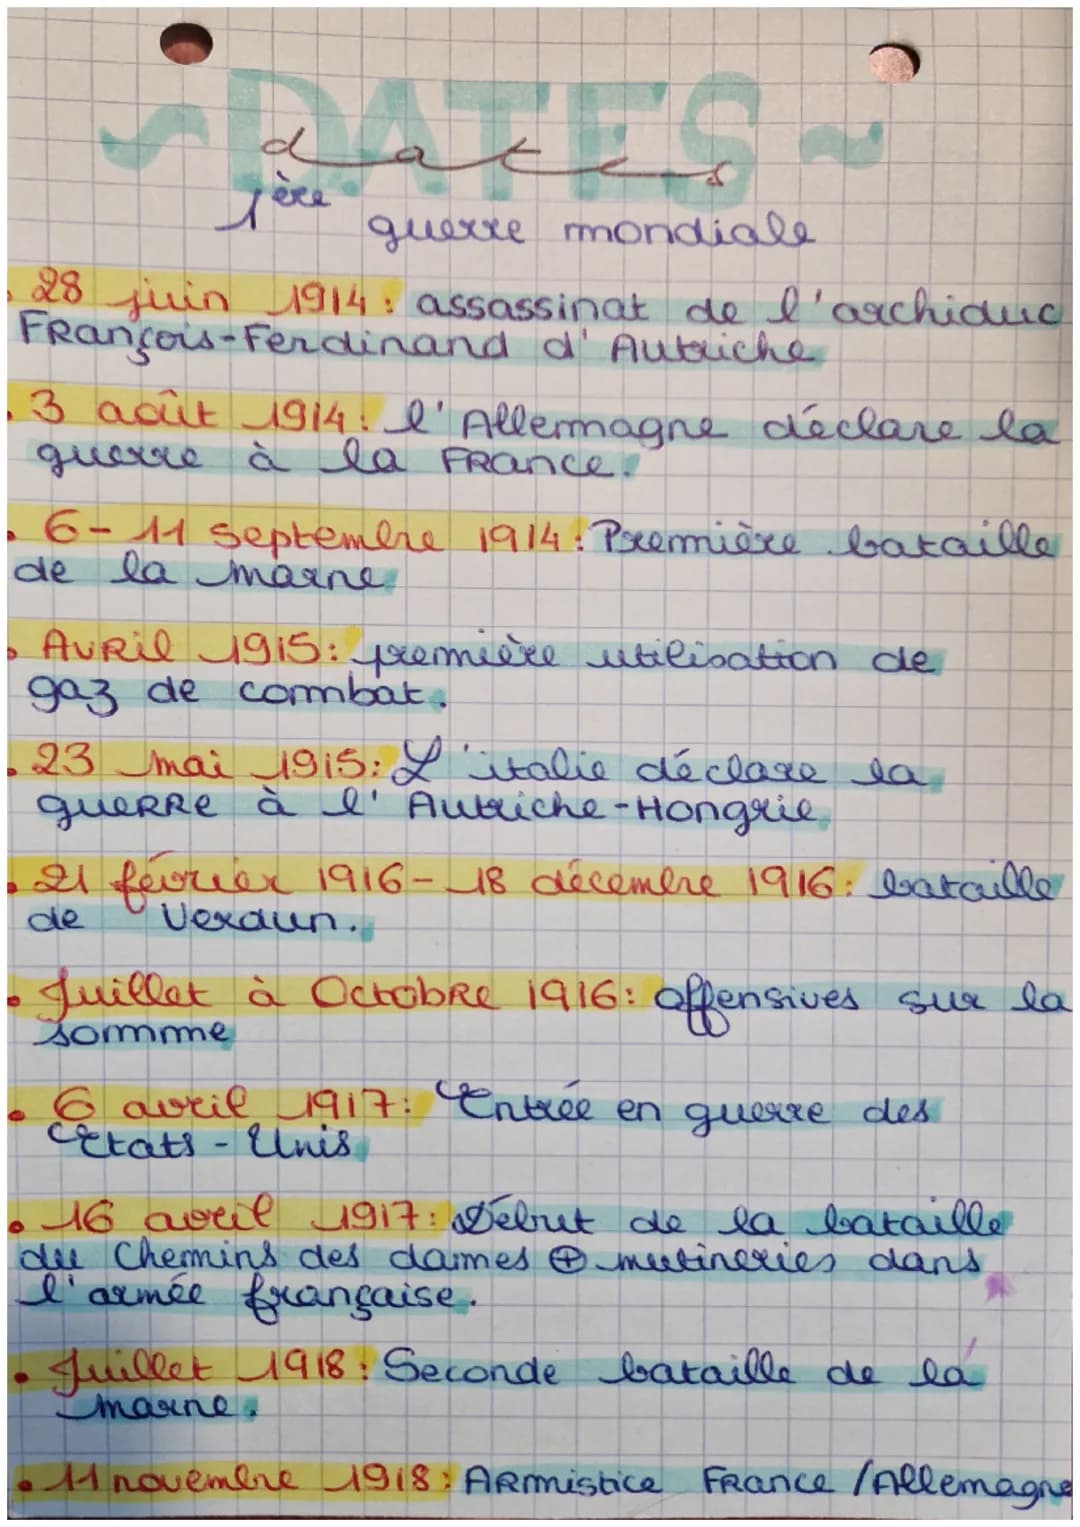 ~DATES~
dates
1ère
guerre mondiale
28 juin 1914: assassinat de l'archiduc
François-Ferdinand d'Autriche
3 août 1914: l'Allemagne déclare la
guerre à la France.
6-11 septembre 1914: Première bataille
de la marne
Avril 1915: première utilisation de
gaz de combat.
23 mai 1915: L'italie déclare la
guerre à l'Autriche-Hongrie
21 février 1916-18 décembre 1916: bataille
de Verdun.
Juillet à Octobre 1916: offensives sur la
somme
6 avril 1917: Entrée en guerre des
Etats-Unis
16 avril 1917: Début de la bataille
du Chemins des dames ⊕ mutineries dans
l'armée française.
Juillet 1918: Seconde bataille de la
marne.
11 novembre 1918: Armistice France/Allemagne